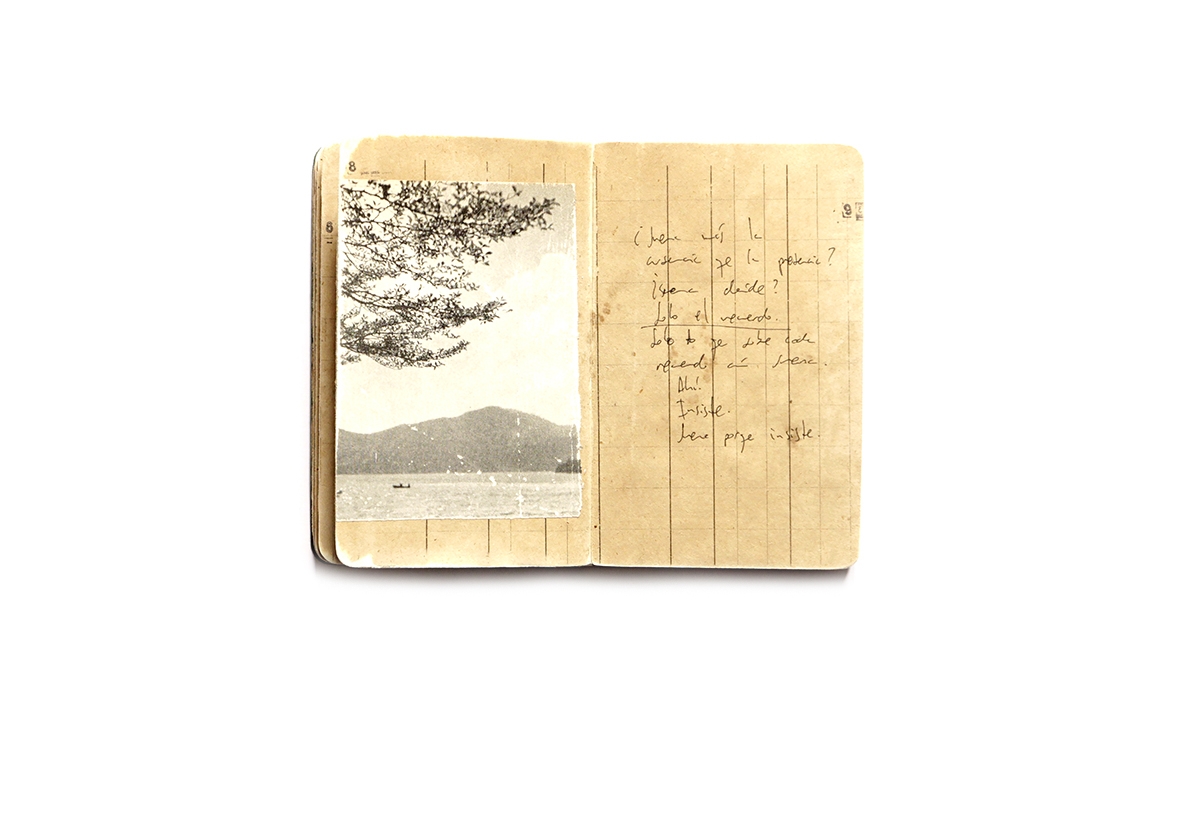 8
8
9
¿Suena más la
ausencia qe la presencia?
¿Suena desde?
Solo el recuerdo.
Solo lo qe sobre cada
recuerdo aún suena.
Ahí.
Insiste.
Suena porqe insiste.